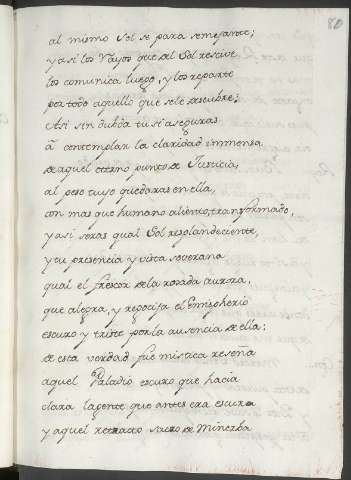 80
al mismo Sol se para semejante;
y asi los Rayos que del Sol resciue,
los comunica luego, y los reparte
por todo aquello que sele descubre;
Asi sin dubda tu si aseguras
à contemplar la claridad immensa
de aquel eterno punto de Justicia,
al peso tuyo quedaras en ella,
con mas que humano aliento, transformado,
y asi seras qual Sol resplandeciente,
y tu presencia y vista soverana
qual el frescor de la rosada aurora,
que alegra, y regocija el Emispherio
escuro y triste por la ausencia de ella;
de esta verdad fue mistica reseña
aquel Paladio escuro que hacia
clara la gente que antes era escura
y aquel retracto sacro de Minerba